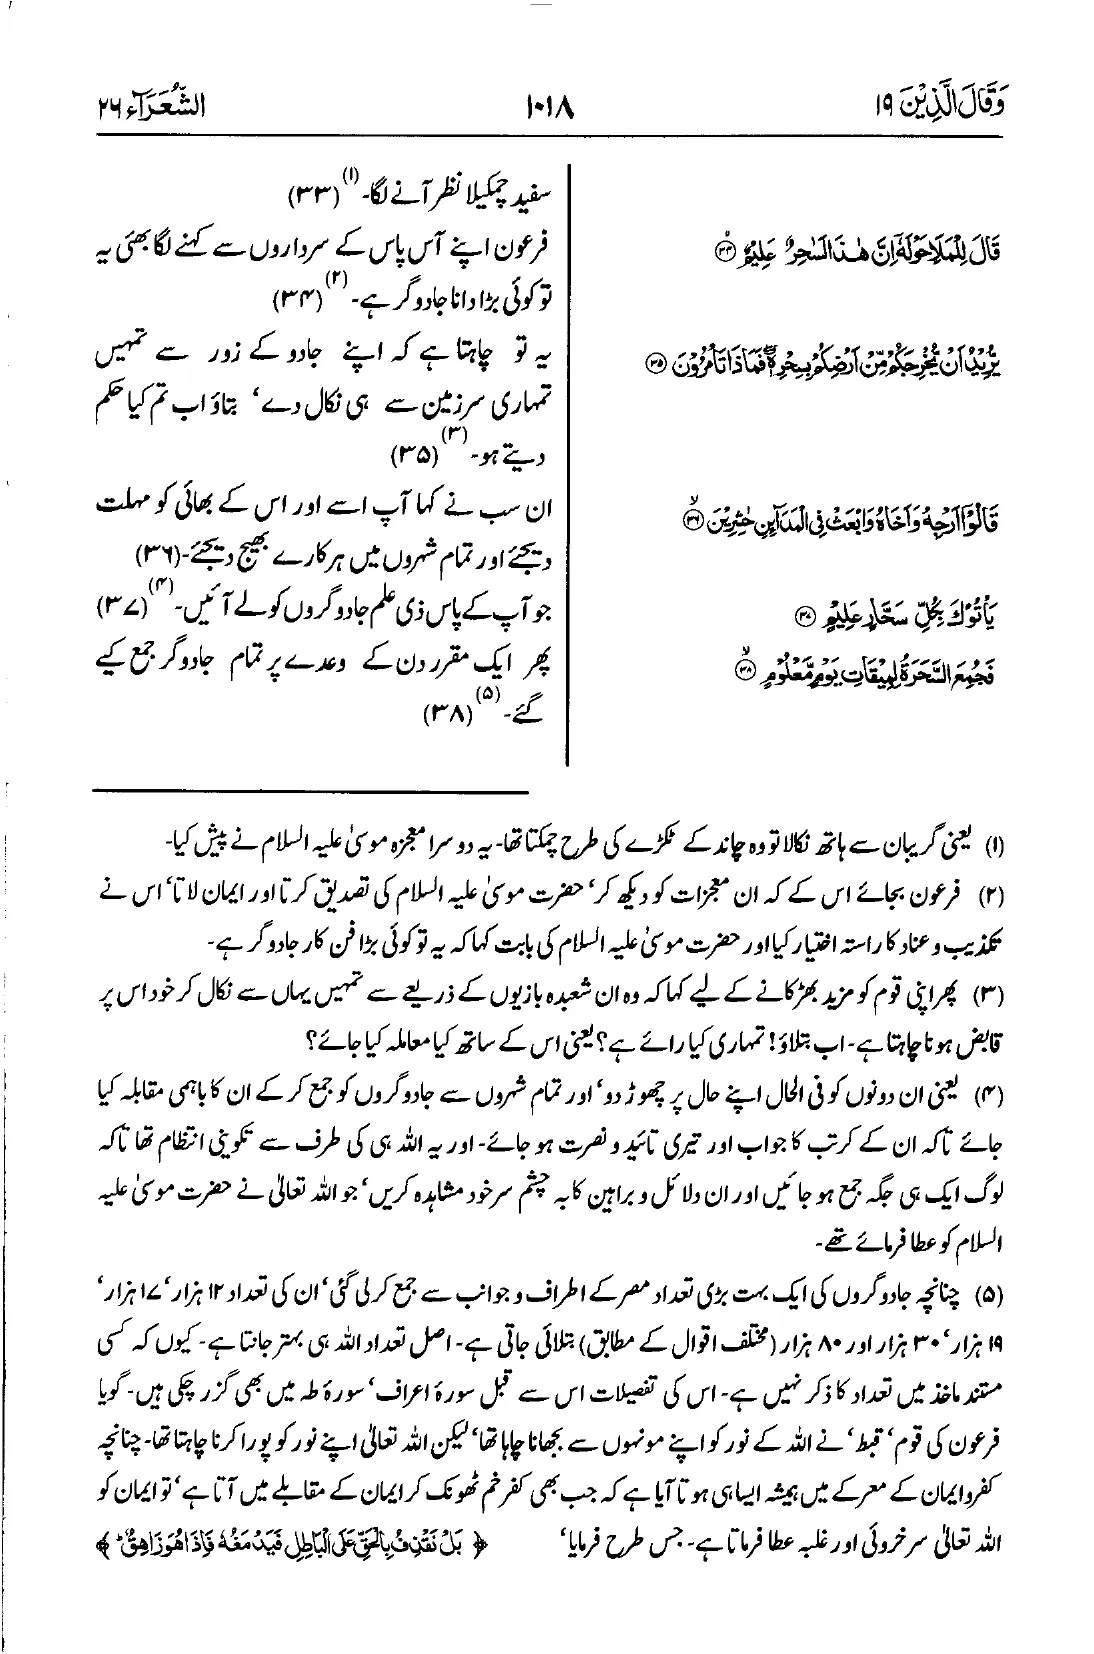 وَقَالَ الَّذِيْنَ ۱۹
۱۰۱۸
الشُّعَرَآء ۲۶
قَالَ لِلْمَلَاِ حَوْلَهٗٓ اِنَّ هٰذَا لَسٰحِرٌ عَلِيْمٌ ۳۴
يُّرِيْدُ اَنْ يُّخْرِجَكُمْ مِّنْ اَرْضِكُمْ بِسِحْرِهٖ فَمَاذَا تَاْمُرُوْنَ ۳۵
قَالُوْٓا اَرْجِهْ وَاَخَاهُ وَابْعَثْ فِي الْمَدَآىِٕنِ حٰشِرِيْنَ ۳۶
يَاْتُوْكَ بِكُلِّ سَحَّارٍ عَلِيْمٍ ۳۷
فَجُمِعَ السَّحَرَةُ لِمِيْقَاتِ يَوْمٍ مَّعْلُوْمٍ ۳۸
سفید چمکیلا نظر آنے لگا۔(۱) (۳۳)
فرعون اپنے آس پاس کے سرداروں سے کہنے لگا بھئی یہ
تو کوئی بڑا دانا جادوگر ہے۔(۲) (۳۴)
یہ تو چاہتا ہے کہ اپنے جادو کے زور سے تمہیں
تمہاری سرزمین سے ہی نکال دے‘ بتاؤ اب تم کیا حکم
دیتے ہو۔(۳) (۳۵)
ان سب نے کہا آپ اسے اور اس کے بھائی کو مہلت
دیجئے اور تمام شہروں میں ہرکارے بھیج دیجئے۔(۳۶)
جو آپ کے پاس ذی علم جادوگروں کو لے آئیں۔(۴) (۳۷)
پھر ایک مقرر دن کے وعدے پر تمام جادوگر جمع کیے
گئے۔(۵) (۳۸)
(۱) یعنی گریبان سے ہاتھ نکالا تو وہ چاند کے ٹکڑے کی طرح چمکتا تھا۔ یہ دوسرا معجزہ موسیٰ علیہ السلام نے پیش کیا۔
(۲) فرعون بجائے اس کے کہ ان معجزات کو دیکھ کر‘ حضرت موسیٰ علیہ السلام کی تصدیق کرتا اور ایمان لاتا‘ اس نے
تکذیب و عناد کا راستہ اختیار کیا اور حضرت موسیٰ علیہ السلام کی بابت کہا کہ یہ تو کوئی بڑا فن کار جادوگر ہے۔
(۳) پھر اپنی قوم کو مزید بھڑکانے کے لیے کہا کہ وہ ان شعبدہ بازیوں کے ذریعے سے تمہیں یہاں سے نکال کر خود اس پر
قابض ہونا چاہتا ہے۔ اب بتلاؤ! تمہاری کیا رائے ہے؟ یعنی اس کے ساتھ کیا معاملہ کیا جائے؟
(۴) یعنی ان دونوں کو فی الحال اپنے حال پر چھوڑ دو‘ اور تمام شہروں سے جادوگروں کو جمع کر کے ان کا باہمی مقابلہ کیا
جائے تاکہ ان کے کرتب کا جواب اور تیری تائید و نصرت ہو جائے۔ اور یہ اللہ ہی کی طرف سے تکوینی انتظام تھا تاکہ
لوگ ایک ہی جگہ جمع ہو جائیں اور ان دلائل و براہین کا بہ چشم سر خود مشاہدہ کریں‘ جو اللہ تعالیٰ نے حضرت موسیٰ علیہ
السلام کو عطا فرمائے تھے۔
(۵) چنانچہ جادوگروں کی ایک بہت بڑی تعداد مصر کے اطراف و جوانب سے جمع کر لی گئی‘ ان کی تعداد ۱۲ ہزار‘ ۱۷ ہزار‘
۱۹ ہزار‘ ۳۰ ہزار اور ۸۰ ہزار (مختلف اقوال کے مطابق) بتلائی جاتی ہے۔ اصل تعداد اللہ ہی بہتر جانتا ہے۔ کیوں کہ کسی
مستند ماخذ میں تعداد کا ذکر نہیں ہے۔ اس کی تفصیلات اس سے قبل سورۂ اعراف‘ سورۂ طہ میں بھی گزر چکی ہیں۔ گویا
فرعون کی قوم‘ قبط‘ نے اللہ کے نور کو اپنے مونہوں سے بجھانا چاہا تھا‘ لیکن اللہ تعالیٰ اپنے نور کو پورا کرنا چاہتا تھا۔ چنانچہ
کفر و ایمان کے معرکے میں ہمیشہ ایسا ہی ہوتا آیا ہے کہ جب بھی کفر خم ٹھونک کر ایمان کے مقابلے میں آتا ہے‘ تو ایمان کو
اللہ تعالیٰ سرخروئی اور غلبہ عطا فرماتا ہے۔ جس طرح فرمایا‘ ﴿ بَلْ نَقْذِفُ بِالْحَقِّ عَلَى الْبَاطِلِ فَيَدْمَغُهٗ فَاِذَا هُوَ زَاهِقٌ ﴾